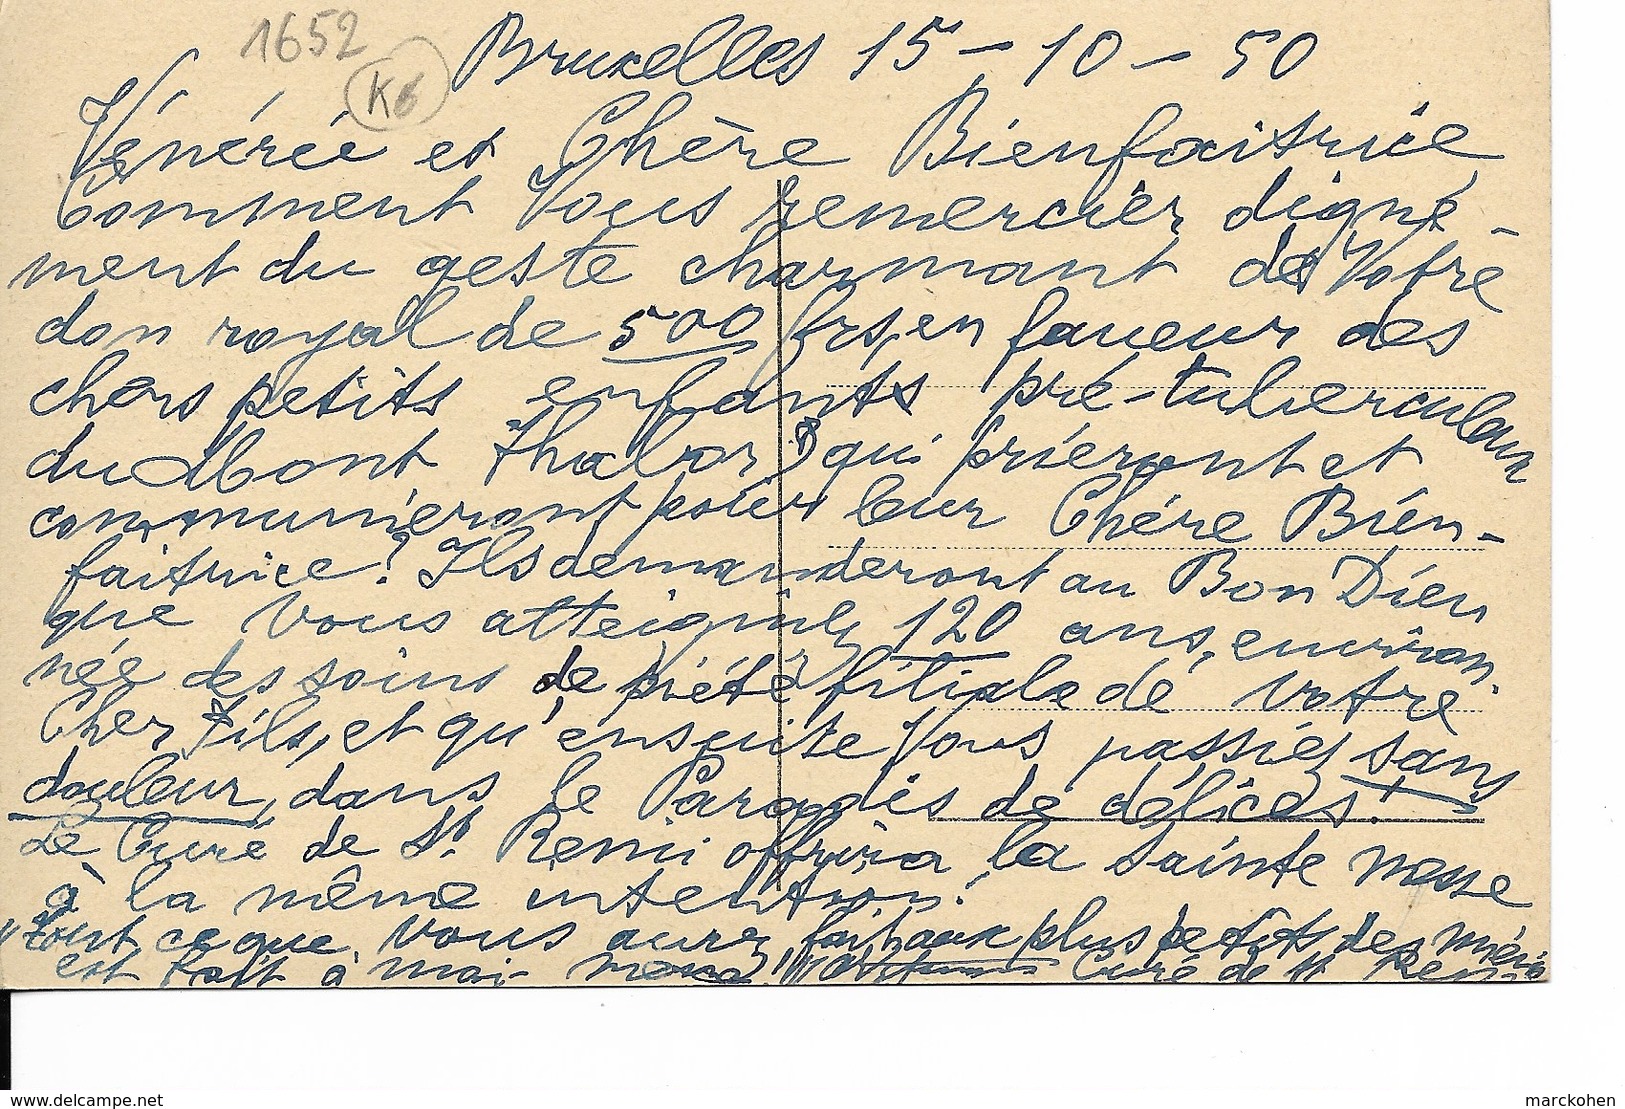 1652
K6
Bruxelles 15-10-50
Vénérée et Chère Bienfaitrice
Comment Vous remercier digne-
ment du geste charmant de Votre
don royal de 500 frs, en faveur des
chers petits enfants pré-tuberculeux
du Mont Thabor, qui prieront et
communieront pour leur Chère Bien-
faitrice? Ils demanderont au Bon Dieu
que Vous atteigniez 120 ans, environ-
née des soins de piété filiale de Votre
Cher Fils, et qu'ensuite Vous passiez sans
douleur, dans le Paradis de délices!
Le Curé de St. Remi offrira la Sainte Messe
à la même intention!
"Tout ce que vous aurez fait aux plus petits des miens
est fait à moi-même" Curé de St Remi
www.delcampe.net
marckohen